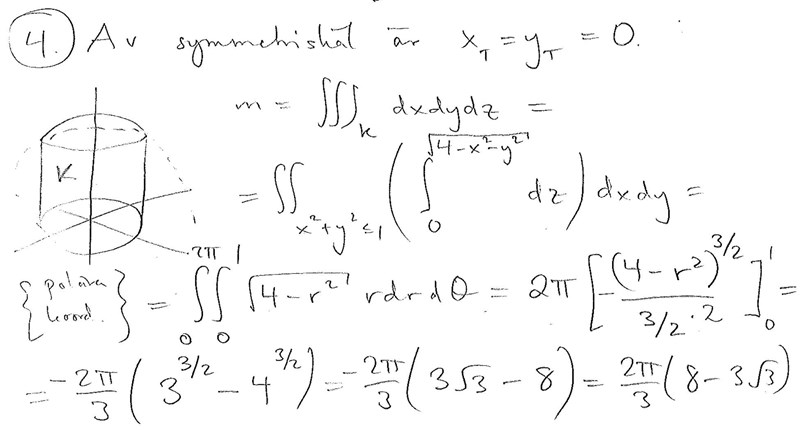 4. Av symmetriskäl är x_T = y_T = 0.
m = ∭_K dxdydz =
K
= ∬_{x²+y²≤1} ( ∫_0^{√(4-x²-y²)} dz ) dxdy =
{ polära koord. } = ∫_0^{2π} ∫_0^1 √(4-r²) r dr dθ = 2π [ -(4-r²)^{3/2} / (3/2 · 2) ]_0^1 =
= -2π/3 ( 3^{3/2} - 4^{3/2} ) = -2π/3 ( 3√3 - 8 ) = 2π/3 ( 8 - 3√3 )